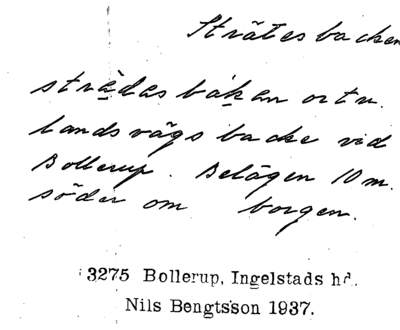 Strätesbacken
strädas båkan ortn.
landsvägsbacke vid
Bollerup. Belägen 10 m.
söder om borgen.
3275 Bollerup, Ingelstads hd.
Nils Bengtsson 1937.